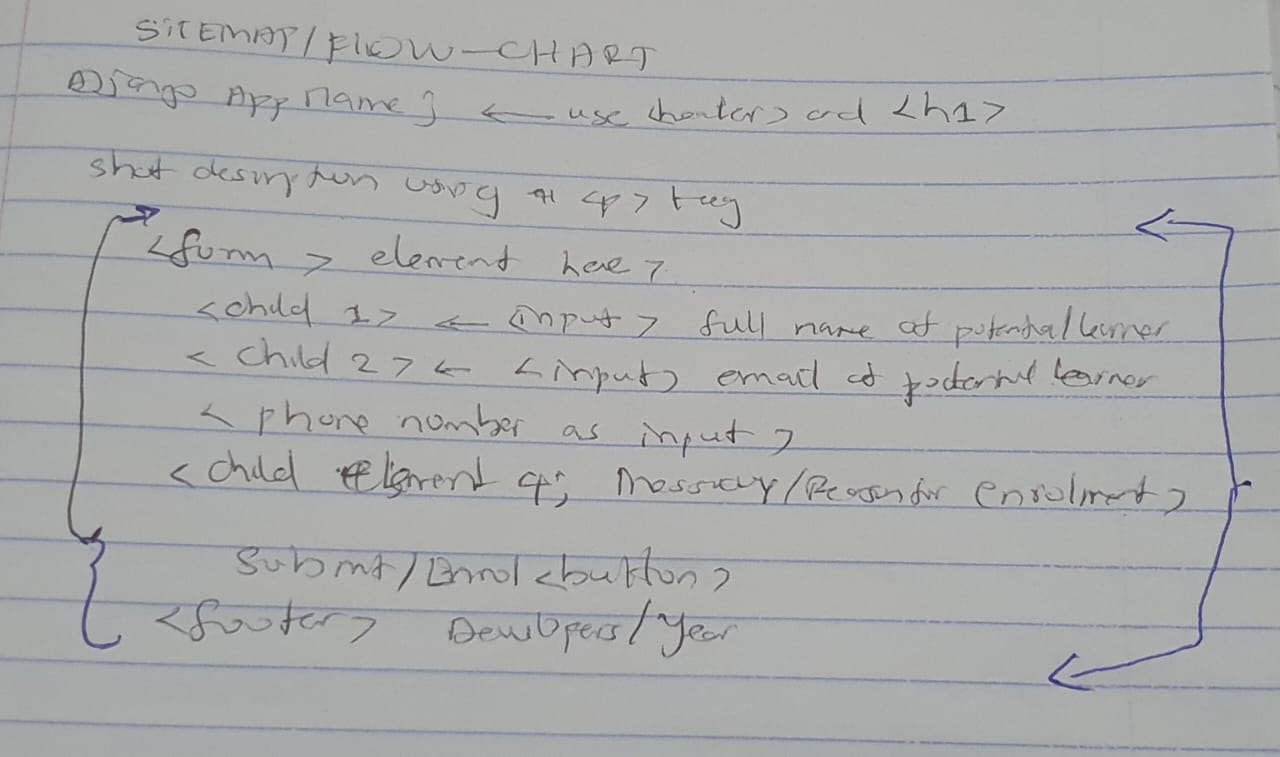 SITEMAP/FLOW-CHART
Django App Name } ← use <header> and <h1>
short description using a <p> tag
<form > element here >
<child 1> ← <input > full name of potential learner
< child 2 > ← <input> email of potential learner
< phone number as input >
<child element 4; Message/Reason for enrolment >
Submit/Enrol <button>
<footer> Developers/Year